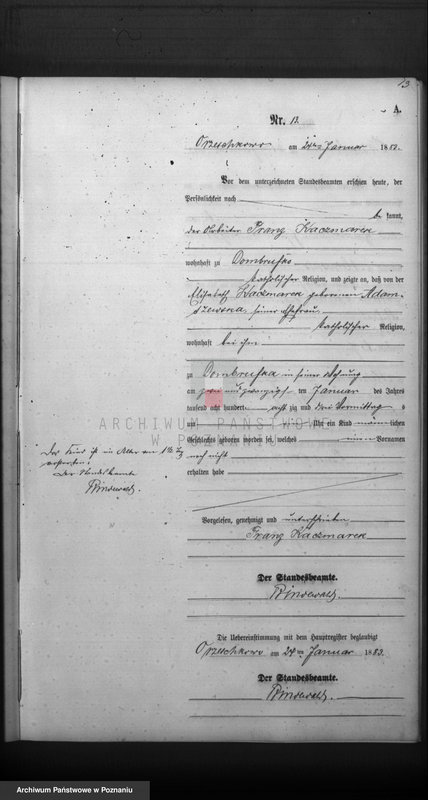 13
A.
Nr. 13.
Orzeschkowo am 24ten Januar 1883.
Vor dem unterzeichneten Standesbeamten erschien heute, der
Persönlichkeit nach
be kannt,
der Arbeiter Franz Kaczmarek
wohnhaft zu Dombrufka
katholischer Religion, und zeigte an, daß von der
Elisabeth Kaczmarek geborenen Adam-
seiner Ehefrau,
katholischer Religion,
wohnhaft bei ihm
zu Dombrufka in seiner Wohnung
am zwei und zwanzigsten Januar des Jahres
tausend acht hundert acht zig und drei Vormittags
um Uhr ein Kind männlichen
Geschlechts geboren worden sei, welches einen Vornamen
noch nicht
erhalten habe
Das Kind ist im Alter von 1½ Tg
verstorben.
Der Standesbeamte
Vorgelesen, genehmigt und unterschrieben
Franz Kaczmarek
Der Standesbeamte.
Die Uebereinstimmung mit dem Hauptregister beglaubigt
Orzeschkowo am 24ten Januar 1883.
Der Standesbeamte.
ARCHIWUM PAŃSTWOWE
W POZNANIU
Archiwum Państwowe w Poznaniu